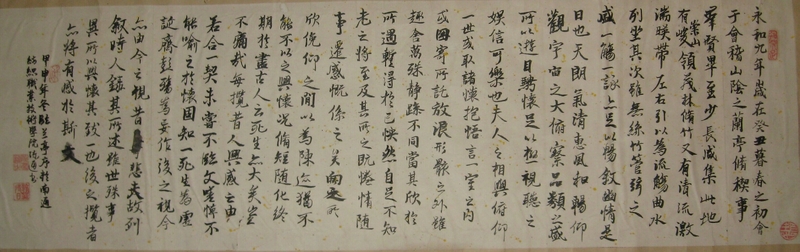 永和九年歲在癸丑暮春之初會
于會稽山陰之蘭亭脩禊事
羣賢畢至少長咸集此地
有崇山峻領茂林脩竹又有清流激
湍暎帶左右引以為流觴曲水
列坐其次雖無絲竹管絃之
盛一觴一詠亦足以暢敘幽情是
日也天朗氣清惠風和暢仰
觀宇宙之大俯察品類之盛
所以遊目騁懷足以極視聽之
娛信可樂也夫人之相與俯仰
一世或取諸懷抱悟言一室之內
或因寄所託放浪形骸之外雖
趣舍萬殊靜躁不同當其欣於
所遇暫得於己怏然自足不知
老之將至及其所之既惓情隨
事遷感慨係之矣向之所
欣俛仰之間以為陳迹猶不
能不以之興懷況脩短隨化終
期於盡古人云死生亦大矣豈
不痛哉每攬昔人興感之由
若合一契未嘗不臨文嗟悼不
能喻之於懷固知一死生為虛
誕齊彭殤為妄作後之視今
亦由今之視昔悲夫故列
敘時人錄其所述雖世殊事
異所以興懷其致一也後之攬者
亦將有感於斯文
甲申年冬臨蘭亭序於南通
紡織職業技術學院